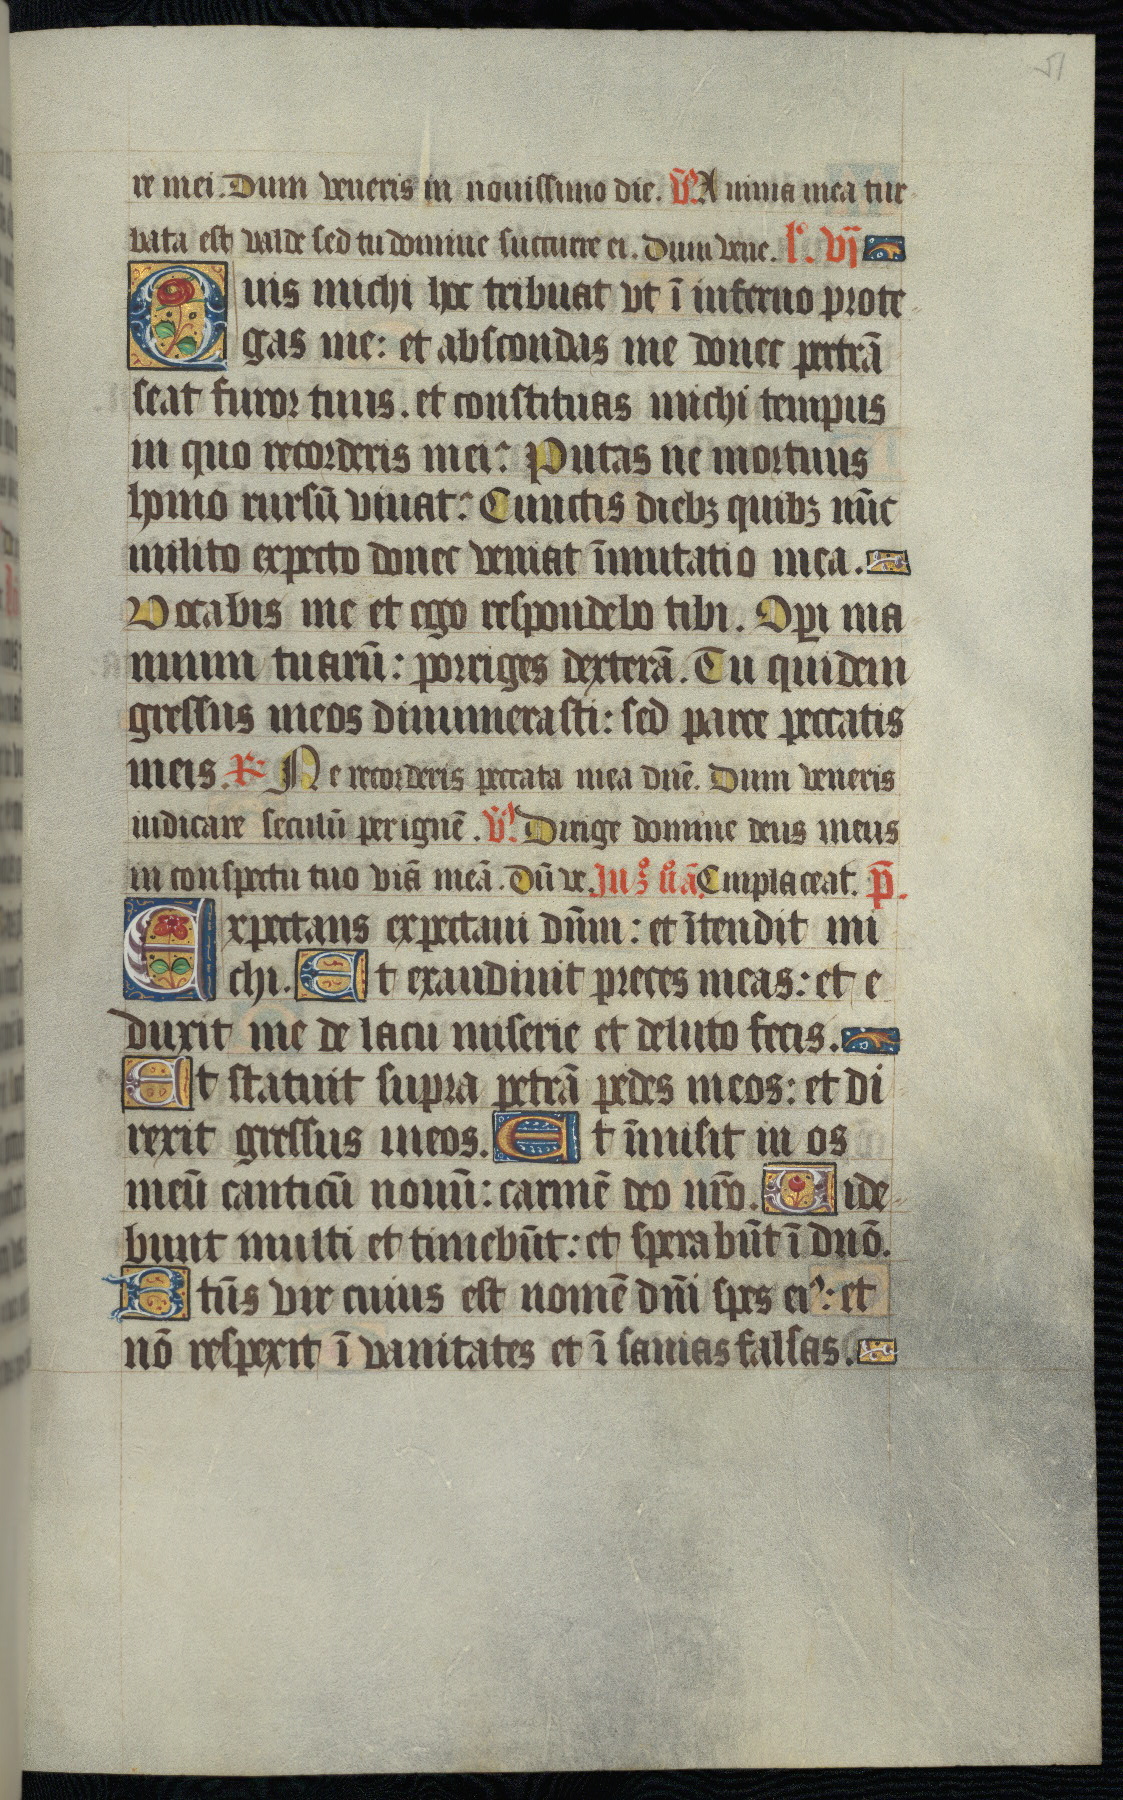 51
re mei. Dum veneris in nouissimo die. V̄. Anima mea tur
bata est valde sed tu domine succurre ei. Dum vene. l'. vj
Quis michi hoc tribuat vt ī inferno prote
gas me: et abscondas me donec pertrā
seat furor tuus. et constituas michi tempus
in quo recorderis mei? Putas ne mortuus
homo rursū viuat? Cunctis diebꝫ quibꝫ nūc
milito expecto donec veniat īmutatio mea.
Vocabis me et ego respondebo tibi. Opi ma
nuum tuarū: porriges dexterā. Tu quidem
gressus meos dinumerasti: sed parce peccatis
meis. ℟ Ne recorderis peccata mea dñe. Dum veneris
iudicare seculū per ignē. V̄. Dirige domine deus meus
in conspectu tuo viā meā. Dū ve. Cmplaceat. p̄.
Expectans expectaui dñm: et ītendit mi
chi. Et exaudiuit preces meas: et e
duxit me de lacu miserie et de luto fecis.
Et statuit supra petrā pedes meos: et di
rexit gressus meos. Et īmisit in os
meū canticū nouū: carmē deo nr̄o. Vide
bunt multi et timebūt: et sperabūt ī dnō.
Btūs vir cuius est nomē dñi spes eiꝰ: et
nō respexit ī vanitates et ī sanias falsas.